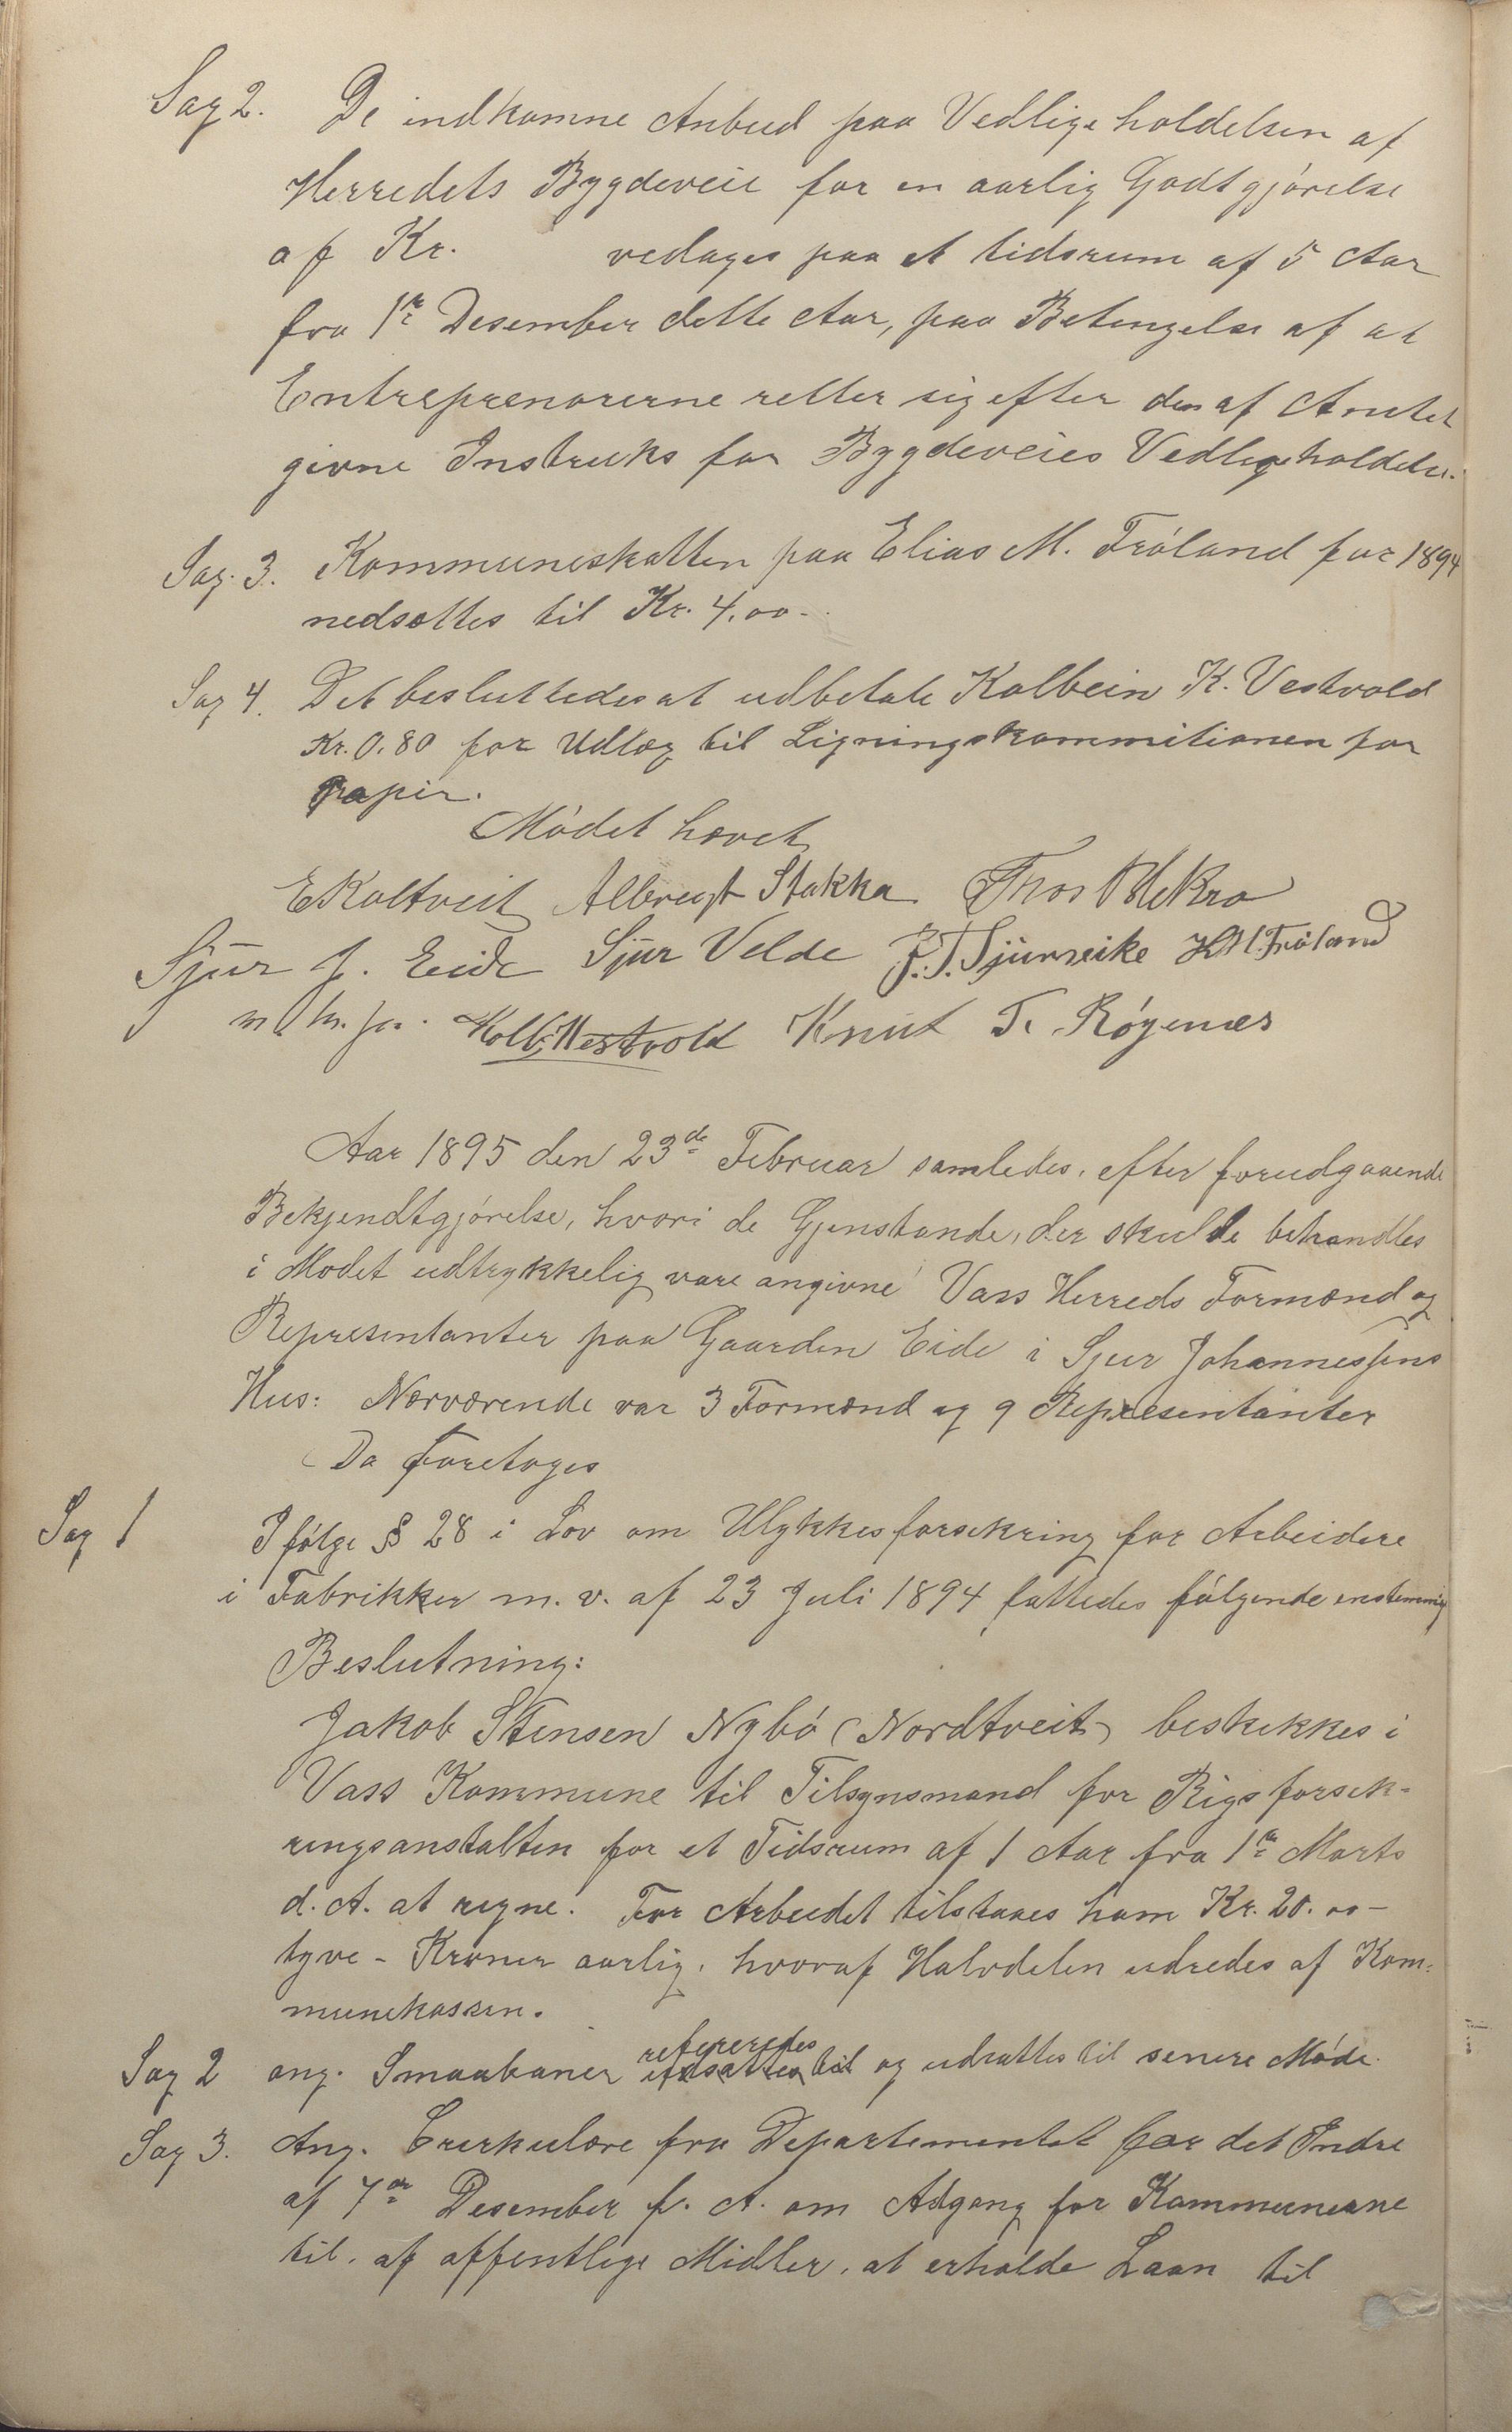 Sag 2. De indkomne Anbud paa Vedligeholdelsen af
Herredets Bygdeveie for en aarlig Godtgjörelse
af Kr. vedtages paa et tidsrum af 5 Aar
fra 1ste Desember dette Aar, paa Betengelse af at
Entreprenorerne retter sig efter den af Amtet
givne Instruks for Bygdeveies Vedligeholdelse.
Sag. 3. Kommuneskatten paa Elias M. Fröland for 1894
nedsættes til Kr. 4.00-
Sag 4. Det besluttedes at udbetale Kolbein K. Vestvold
Kr. 0.80 for Udlæg til Ligningskommitionen for
Papir.
Mödet hævet
E Koltveit Albregt Stakka Thos
Sjur J. Eide Sjur Velde J. T. Sjurseike H M Fröland
m. f. p. Kolb. Westvold Knut T. Röyenæs
Aar 1895 den 23de Februar samledes, efter forudgaaende
Bekjendtgjörelse, hvori de Gjenstande, der skulde behandles
i Modet udtrykkelig vare angivne Vass Herreds Formænd og
Representanter paa Gaarden Eide i Sjur Johannessens
Hus: Nærværende var 3 Formænd og 9 Representanter
Da foretoges
Sag 1 Ifölge § 28 i Lov om Ulykkesforsikring for Arbeidere
i Fabrikker m. v. af 23 Juli 1894 fattedes fölgende enstemmig
Beslutning:
Jakob Stensen Nybö (Nordtveit) beskikkes i
Vass Kommune til Tilsynsmand for Rigsforsik-
ringsanstalten for et Tidsrum af 1 Aar fra 1ste Marts
d. A. at regne. For Arbeidet tilstaaes ham Kr. 20.00-
tyve - Kroner aarlig, hvoraf Halvdelen udredes af Kom-
munekassen.
Sag 2 ang. Smaabaner refereredes og udsattes til senere Möde.
Sag 3. Ang. Cirkulære fra Departementet for det Indre
af 7de Desember f. A. om Adgang for Kommunerne
til, af offentlige Midler, at erholde Laan til